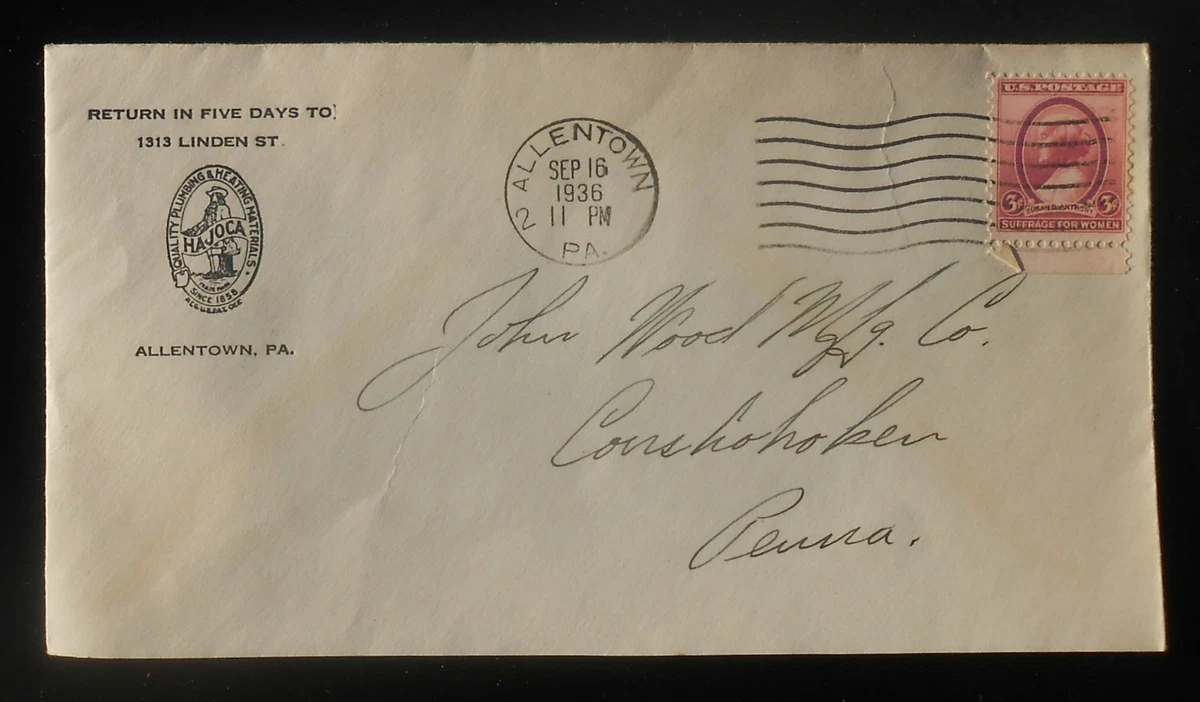 RETURN IN FIVE DAYS TO
1313 LINDEN ST.
QUALITY PLUMBING & HEATING MATERIALS
HAJOCA
TRADE MARK
SINCE 1858
REG. U.S. PAT. OFF.
ALLENTOWN, PA.
ALLENTOWN
SEP 16
1936
11 PM
2
PA.
U.S. POSTAGE
3¢ SUSAN B. ANTHONY 3¢
SUFFRAGE FOR WOMEN
John Wood Mfg. Co.
Conshohoken
Penna.